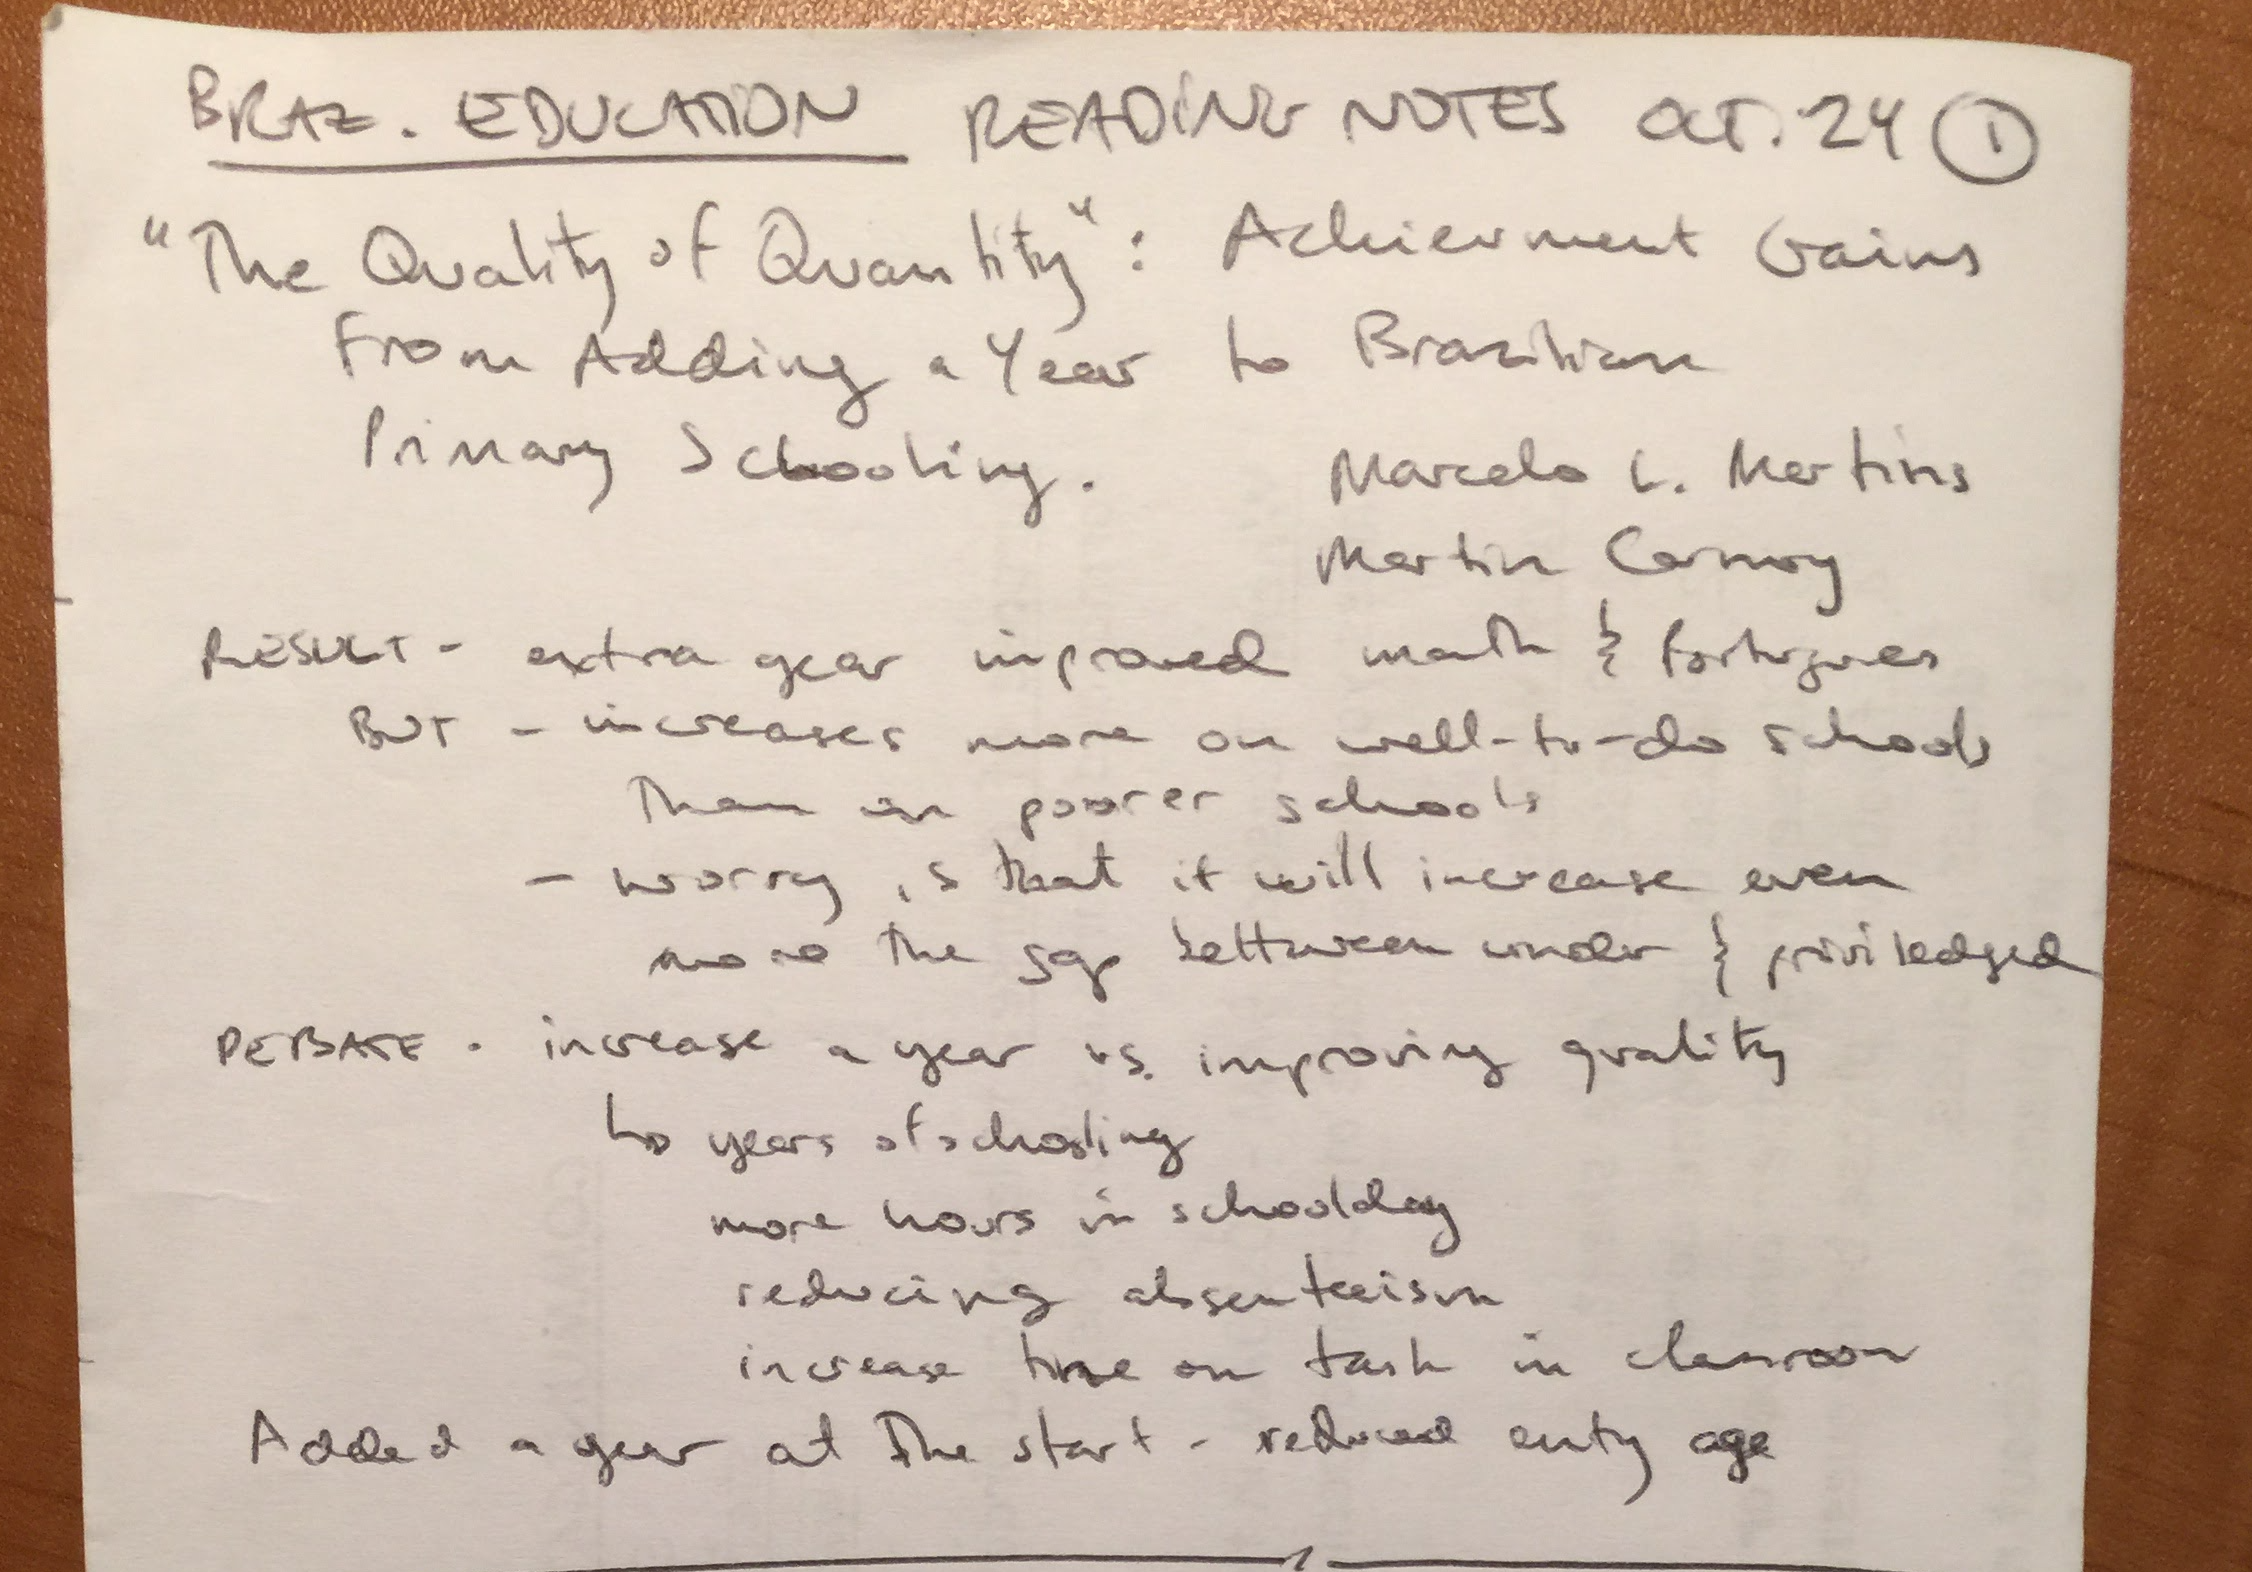 BRAZ. EDUCATION READING NOTES OCT. 24 ①
"The Quality of Quantity": Achievement Gains
From Adding a Year to Brazilian
Primary Schooling.
Marcelo L. Martins
Martin Carnoy
RESULT - extra year improved math & Portugues
BUT - increases more on well-to-do schools
Than in poorer schools
- worry is that it will increase even
more the gap bettween under & priviledged
DEBATE - increase a year vs. improving quality
to years of schooling
more hours in schoolday
reducing absenteeism
increase time on task in classroom
Added a year at the start - reduced entry age